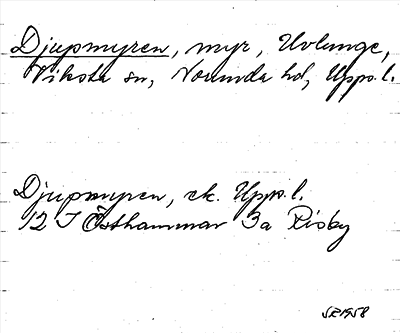 Djupmyren, myr, Uvlunge,
Viksta sn, Norunda hd, Upps. l.
Djupmyren, ek. Upps. l.
12 I Östhammar 3a Risby
SR 1958